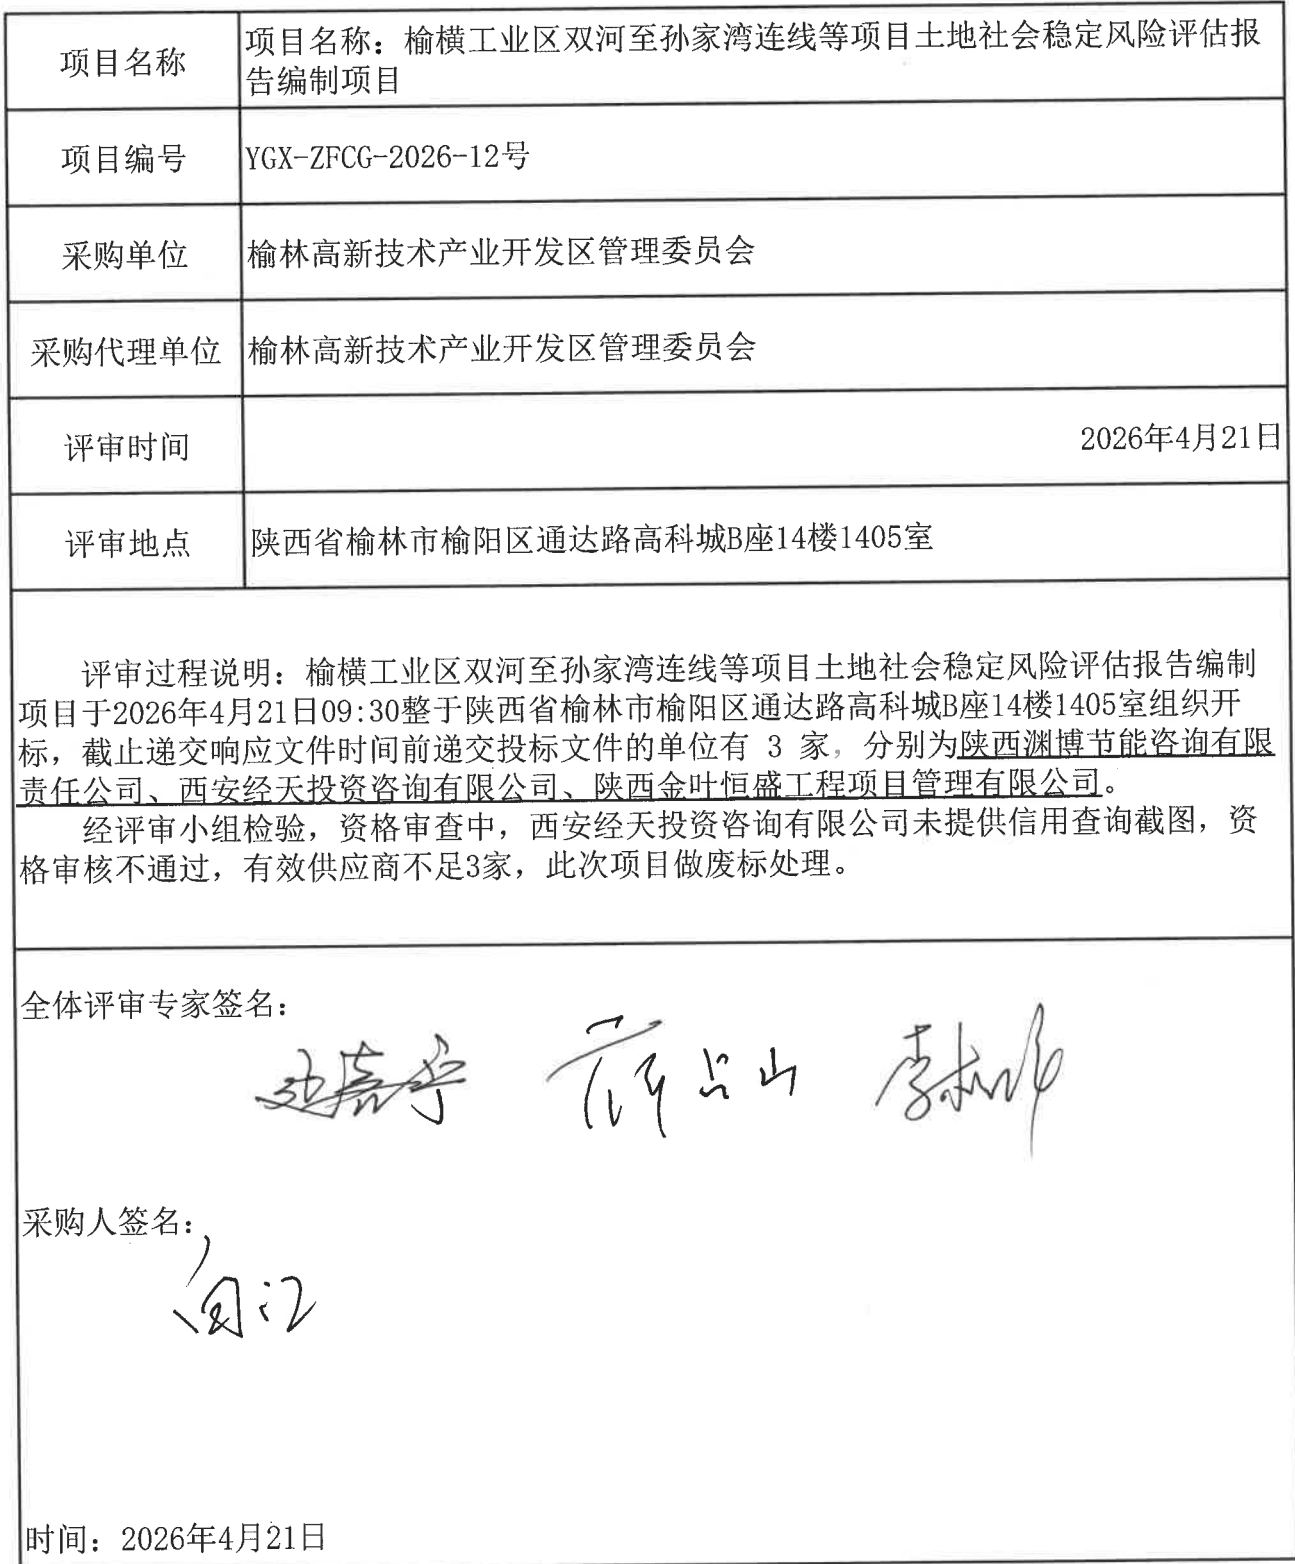 项目名称
项目名称：榆横工业区双河至孙家湾连线等项目土地社会稳定风险评估报
告编制项目
项目编号
YGX-ZFCG-2026-12号
采购单位
榆林高新技术产业开发区管理委员会
采购代理单位
榆林高新技术产业开发区管理委员会
评审时间
2026年4月21日
评审地点
陕西省榆林市榆阳区通达路高科城B座14楼1405室
评审过程说明：榆横工业区双河至孙家湾连线等项目土地社会稳定风险评估报告编制
项目于2026年4月21日09:30整于陕西省榆林市榆阳区通达路高科城B座14楼1405室组织开
标，截止递交响应文件时间前递交投标文件的单位有 3 家，分别为陕西渊博节能咨询有限
责任公司、西安经天投资咨询有限公司、陕西金叶恒盛工程项目管理有限公司。
经评审小组检验，资格审查中，西安经天投资咨询有限公司未提供信用查询截图，资
格审核不通过，有效供应商不足3家，此次项目做废标处理。
全体评审专家签名：
采购人签名：
时间：2026年4月21日